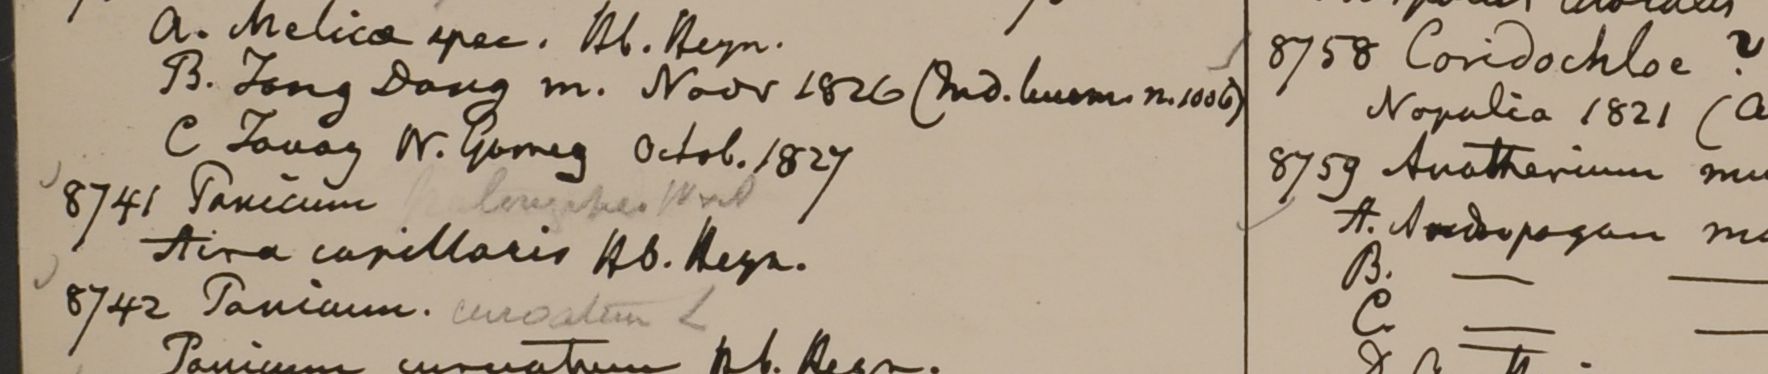 a. Melica spec. Hb. Heyn.
B. Tong Dong m. Novr 1826 (Ind. burm. n. 1006)
C Tavoy W. Gomez Octob. 1827
8741 Panicum longipes
Aira capillaris Hb. Heyn.
8742 Panicum. curvatum L
Panicum curvatum Hb. Heyn.
8758 Coridochloe ?
Nopalia 1821 (a
8759 Anatherium mu
A. Andropogon mu
B. — —
C. — —
D